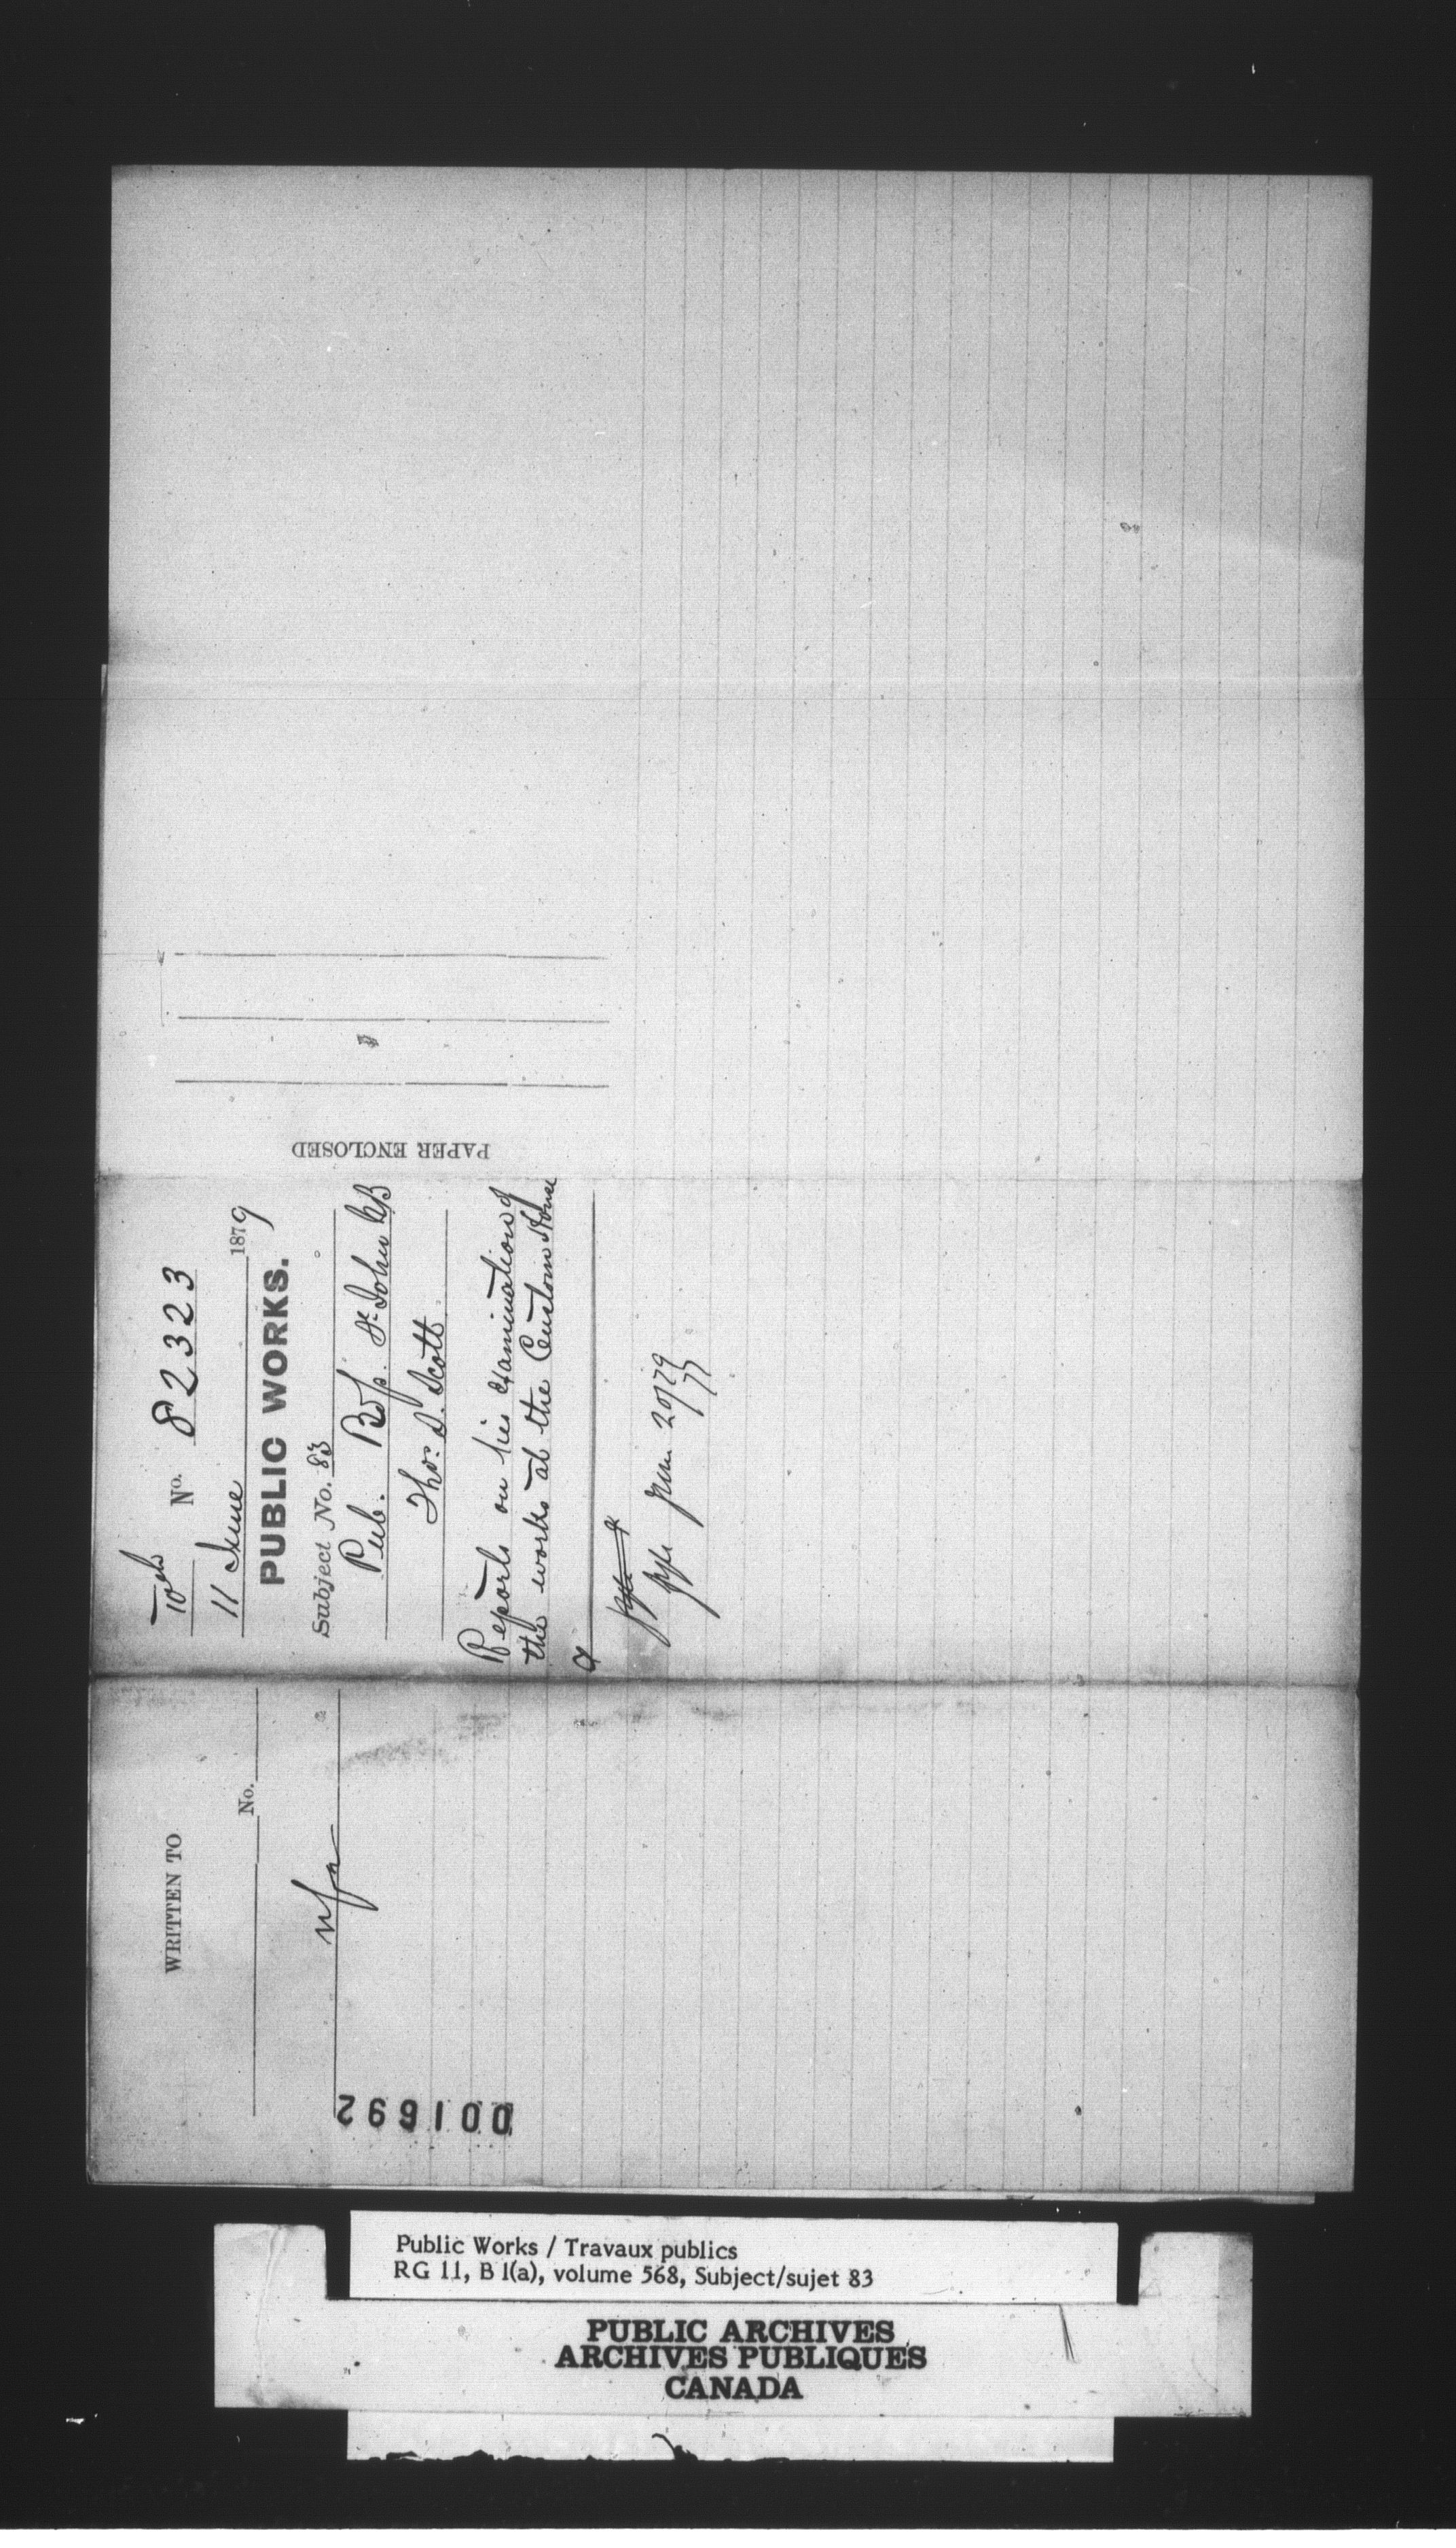 10th No. 82323
11 June 1879
PUBLIC WORKS.
Subject No. 83
Pub. Bdgs. St. John NB
Thos. S. Scott
Reports on his examination of
the works at the Custom House
PAPER ENCLOSED
WRITTEN TO
No.
nfa
001692
Public Works / Travaux publics
RG 11, B 1(a), volume 568, Subject/sujet 83
PUBLIC ARCHIVES
ARCHIVES PUBLIQUES
CANADA